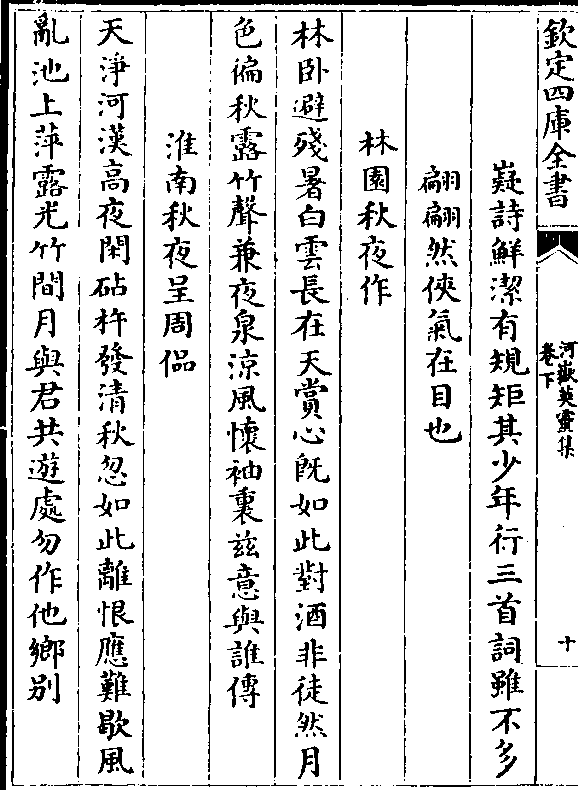 欽定四庫全書
河嶽英靈集
卷下
十
嶷詩鮮潔有規矩其少年行三首詞雖不多
翩翩然俠氣在目也
林園秋夜作
林卧避殘暑白雲長在天賞心既如此對酒非徒然月
色徧秋露竹聲兼夜泉涼風懷袖裏兹意與誰傳
淮南秋夜呈周侣
天淨河漢高夜閑砧杵發清秋忽如此離恨應難歇風
亂池上萍露光竹間月與君共遊處勿作他鄉别